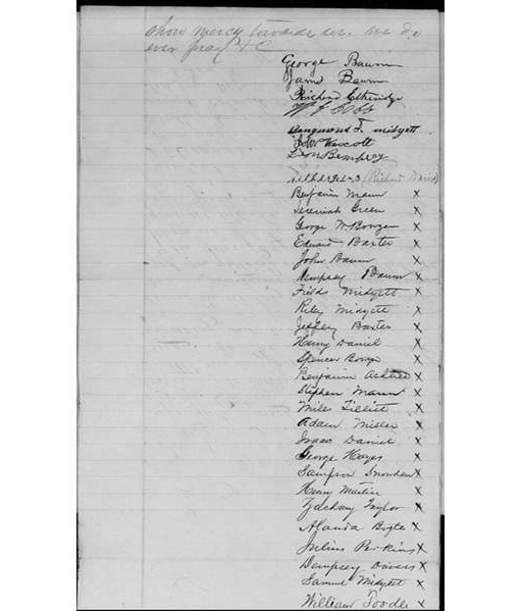 show mercy towards us. we do
ever pray &C
George Baum
James Baum
Richard Etheridge
W J Cobb
F. midyett
John Wescott
(Richard
Benjamin Mann X
Jeremiah Green X
George W. Bowzer X
Edward Baxter X
John Baum X
Dempsey Baum X
Fields Midyett X
Riley Midyett X
Jeffery Baxter X
Henry Daniel X
Spencer X
Benjamin X
Stephen Mann X
Miles Tillett X
Adam Miller X
Isaac Daniel X
George Hayes X
Sampson X
Henry Martin X
Zachary Taylor X
X
Julius Perkins X
Dempsey X
Samuel Midyett X
William Toodle X